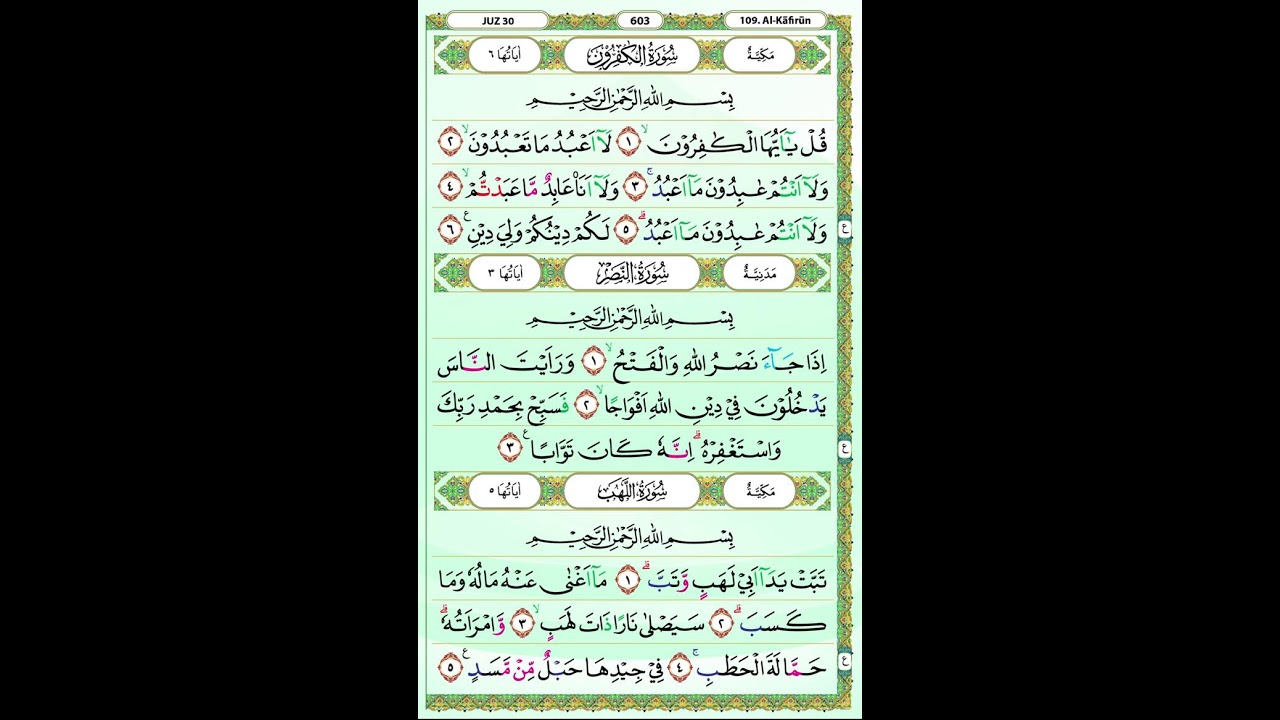 JUZ 30 603 109. Al-Kāfirūn
مَكِّيَّةٌ سُوْرَةُ الْكٰفِرُوْنَ اٰيَاتُهَا ٦
بِسْمِ اللّٰهِ الرَّحْمٰنِ الرَّحِيْمِ
قُلْ يٰٓاَيُّهَا الْكٰفِرُوْنَۙ ١ لَآ اَعْبُدُ مَا تَعْبُدُوْنَۙ ٢
وَلَآ اَنْتُمْ عٰبِدُوْنَ مَآ اَعْبُدُۚ ٣ وَلَآ اَنَا۠ عَابِدٌ مَّا عَبَدْتُّمْۙ ٤
وَلَآ اَنْتُمْ عٰبِدُوْنَ مَآ اَعْبُدُۗ ٥ لَكُمْ دِيْنُكُمْ وَلِيَ دِيْنِ ࣖ ٦
ع
مَدَنِيَّةٌ سُوْرَةُ النَّصْرِ اٰيَاتُهَا ٣
بِسْمِ اللّٰهِ الرَّحْمٰنِ الرَّحِيْمِ
اِذَا جَاۤءَ نَصْرُ اللّٰهِ وَالْفَتْحُۙ ١ وَرَاَيْتَ النَّاسَ
يَدْخُلُوْنَ فِيْ دِيْنِ اللّٰهِ اَفْوَاجًاۙ ٢ فَسَبِّحْ بِحَمْدِ رَبِّكَ
وَاسْتَغْفِرْهُۗ اِنَّهٗ كَانَ تَوَّابًا ࣖ ٣
ع
مَكِّيَّةٌ سُوْرَةُ اللَّهَبِ اٰيَاتُهَا ٥
بِسْمِ اللّٰهِ الرَّحْمٰنِ الرَّحِيْمِ
تَبَّتْ يَدَآ اَبِيْ لَهَبٍ وَّتَبَّۗ ١ مَآ اَغْنٰى عَنْهُ مَالُهٗ وَمَا
كَسَبَۗ ٢ سَيَصْلٰى نَارًا ذَاتَ لَهَبٍۙ ٣ وَّامْرَاَتُهٗۗ
حَمَّالَةَ الْحَطَبِۚ ٤ فِيْ جِيْدِهَا حَبْلٌ مِّنْ مَّسَدٍ ࣖ ٥
ع